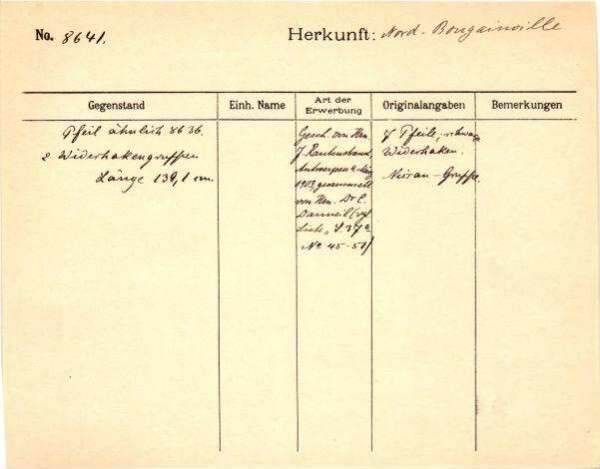 No. 8641.
Herkunft: Nord-Bougainville
Gegenstand
Einh. Name
Art der
Erwerbung
Originalangaben
Bemerkungen
Pfeil ähnlich 8636.
2 Widerhakengruppen
Länge 139,1 cm.
Gesch. von Hrn.
J.
Antwerpen
1913, gesammelt
von Hrn. Dr. C.
Danneil (vgl.
Liste, S. 37a
No 45-51)
7 Pfeile, schwarze
Widerhaken.
-Gruppe.